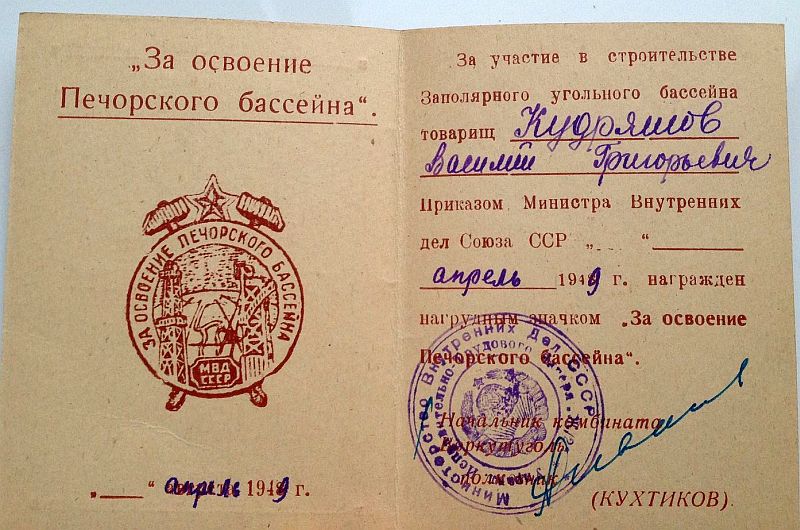 „За освоение
Печорского бассейна“.
ЗА ОСВОЕНИЕ ПЕЧОРСКОГО БАССЕЙНА
МВД
СССР
„___“ апрель 1949 г.
За участие в строительстве
Заполярного угольного бассейна
товарищ Кудряшов
Василий Григорьевич
Приказом Министра Внутренних
дел Союза ССР „___“
апрель 1949 г. награжден
нагрудным значком „За освоение
Печорского бассейна“.
Министерство Внутренних Дел СССР
Исправительно-трудового лагеря
Начальник комбината
Воркутуголь
полковник
(КУХТИКОВ).